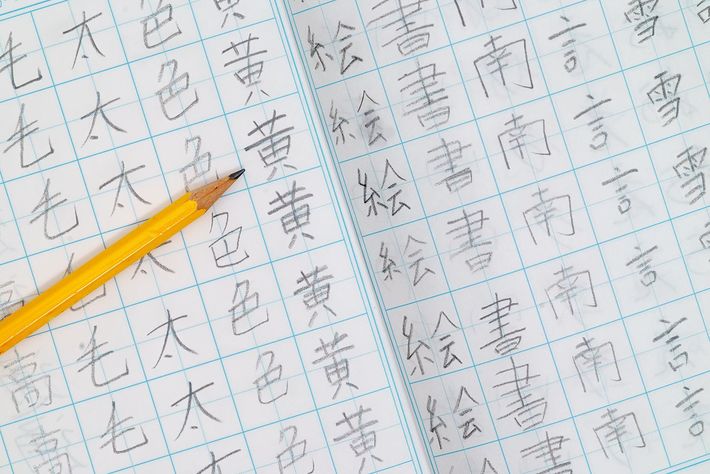 雪雪雪
言言言言言言
南南南南南南
書書書書書書書
絵絵絵絵絵絵
黄黄黄黄黄黄黄
色色色色色色色
太太太太太太
毛毛毛毛毛